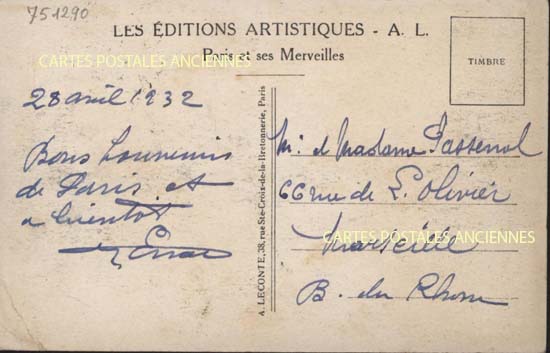 751290
LES ÉDITIONS ARTISTIQUES - A. L.
Paris et ses Merveilles
CARTES POSTALES ANCIENNES
TIMBRE
28 avril 1932
Bons souvenirs
de Paris et
a bientot
A. LECONTE, 38, rue Ste-Croix-de-la-Bretonnerie, Paris
Mr et Madame
66 rue de L. olivier
CARTES POSTALES ANCIENNES
Marseille
B. du Rhone